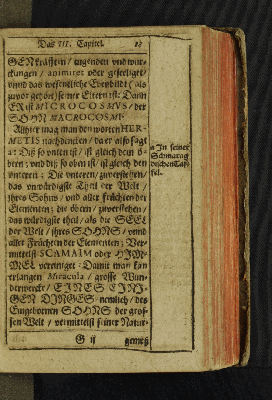 Das III. Capitel. 17
GEN kräfften / tugenden vnd würckungen
/ animiret oder geseeliget /
vnnd das wesentliche Ebenbildt / als
zuvor gehört / seiner Eltern ist: Dann
ER ist MICROCOSMVS / der
SOHN MACROCOSMI.
Allhier mag man den worten HERMETIS
nachdencken / da er also sagt
a: Diß so vnten ist / ist gleich dem obern
; vnd diß so oben ist / ist gleich dem
vnteren : Die vnteren / zuverstehen /
das vnwürdigste Theil der Welt /
jhres Sohns / vnd aller früchten der
Elementen ; die obern / zuverstehen /
das würdigste theil / als die SEEL
der Welt / jhres SOHNS / vnnd
aller Früchten der Elementen ; Vermittelst
SCAMAIM oder HIMMEL
vereiniget : Damit man kan
erlangen Miracula / grosse Wunderwerck
/ EINES EINIGEN
DINGES nemlich / des
Eingebornen SOHNS der grossen
Welt / vermittelst seiner Natur
G ij gemeß
a In seiner
Schmaragdinischen
Taffel.